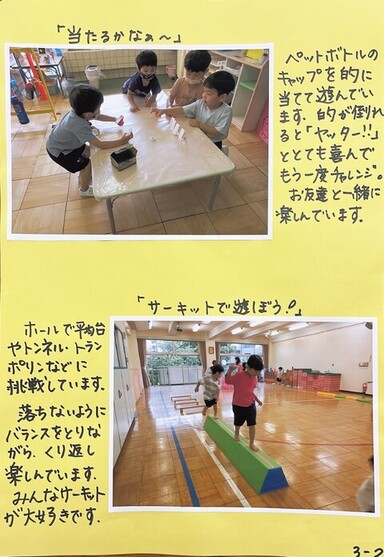 「当たるかなぁ〜」
ペットボトルの
キャップを的に
当てて遊んでい
ます。的が倒れ
ると「ヤッター!!」
ととても喜んで
もう一度チャレンジ。
お友達と一緒に
楽しんでいます。
「サーキットで遊ぼう!」
ホールで平均台
やトンネル・トラン
ポリンなどに
挑戦しています。
落ちないように
バランスをとりな
がら、くり返し
楽しんでいます。
みんなサーキット
が大好きです。
3-2